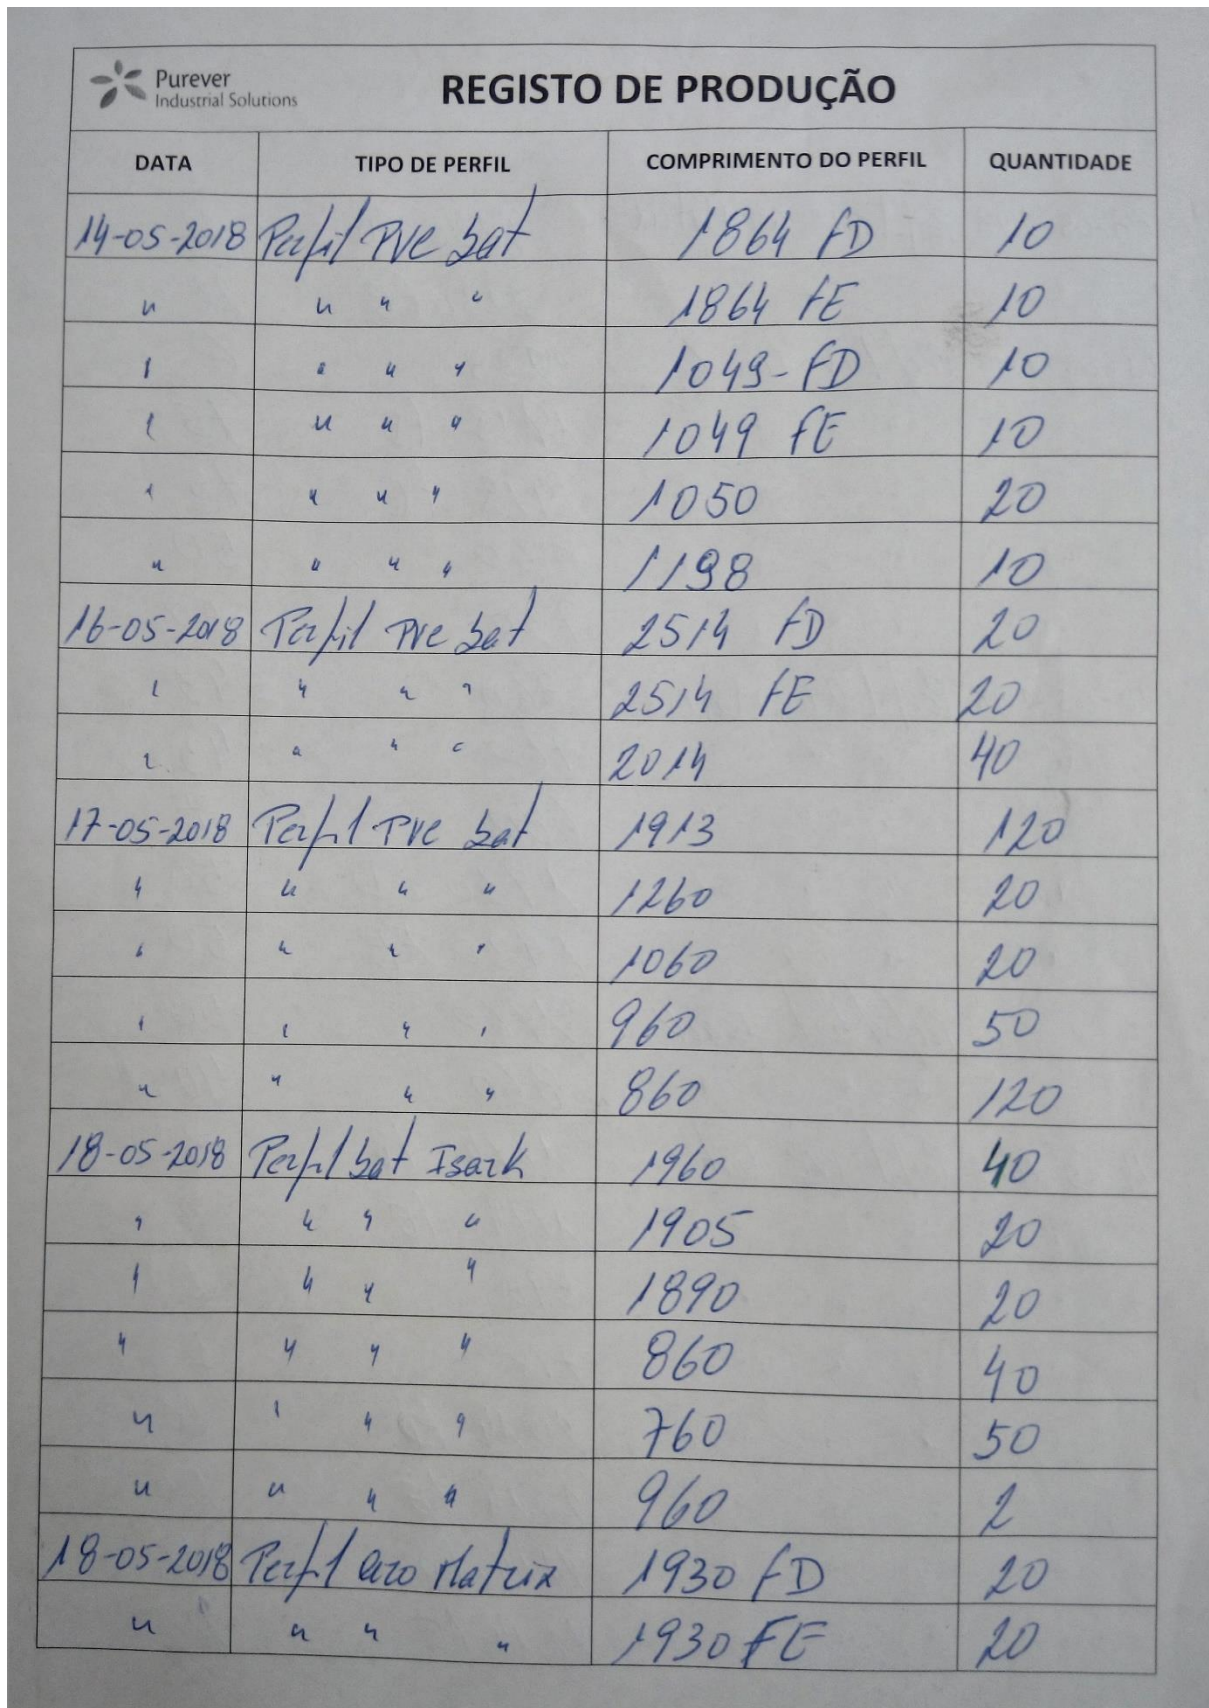 Purever
Industrial Solutions
REGISTO DE PRODUÇÃO
DATA TIPO DE PERFIL COMPRIMENTO DO PERFIL QUANTIDADE
14-05-2018 Perfil PVC bat 1864 FD 10
" " " " 1864 FE 10
" " " " 1049-FD 10
" " " " 1049 FE 10
" " " " 1050 20
" " " " 1198 10
16-05-2018 Perfil PVC bat 2514 FD 20
" " " " 2514 FE 20
" " " " 2014 40
17-05-2018 Perfil PVC bat 1913 120
" " " " 1260 20
" " " " 1060 20
" " " " 960 50
" " " " 860 120
18-05-2018 Perfil bat Isark 1960 40
" " " " 1905 20
" " " " 1890 20
" " " " 860 40
" " " " 760 50
" " " " 960 2
18-05-2018 Perfil aro Matrix 1930 FD 20
" " " " 1930 FE 20